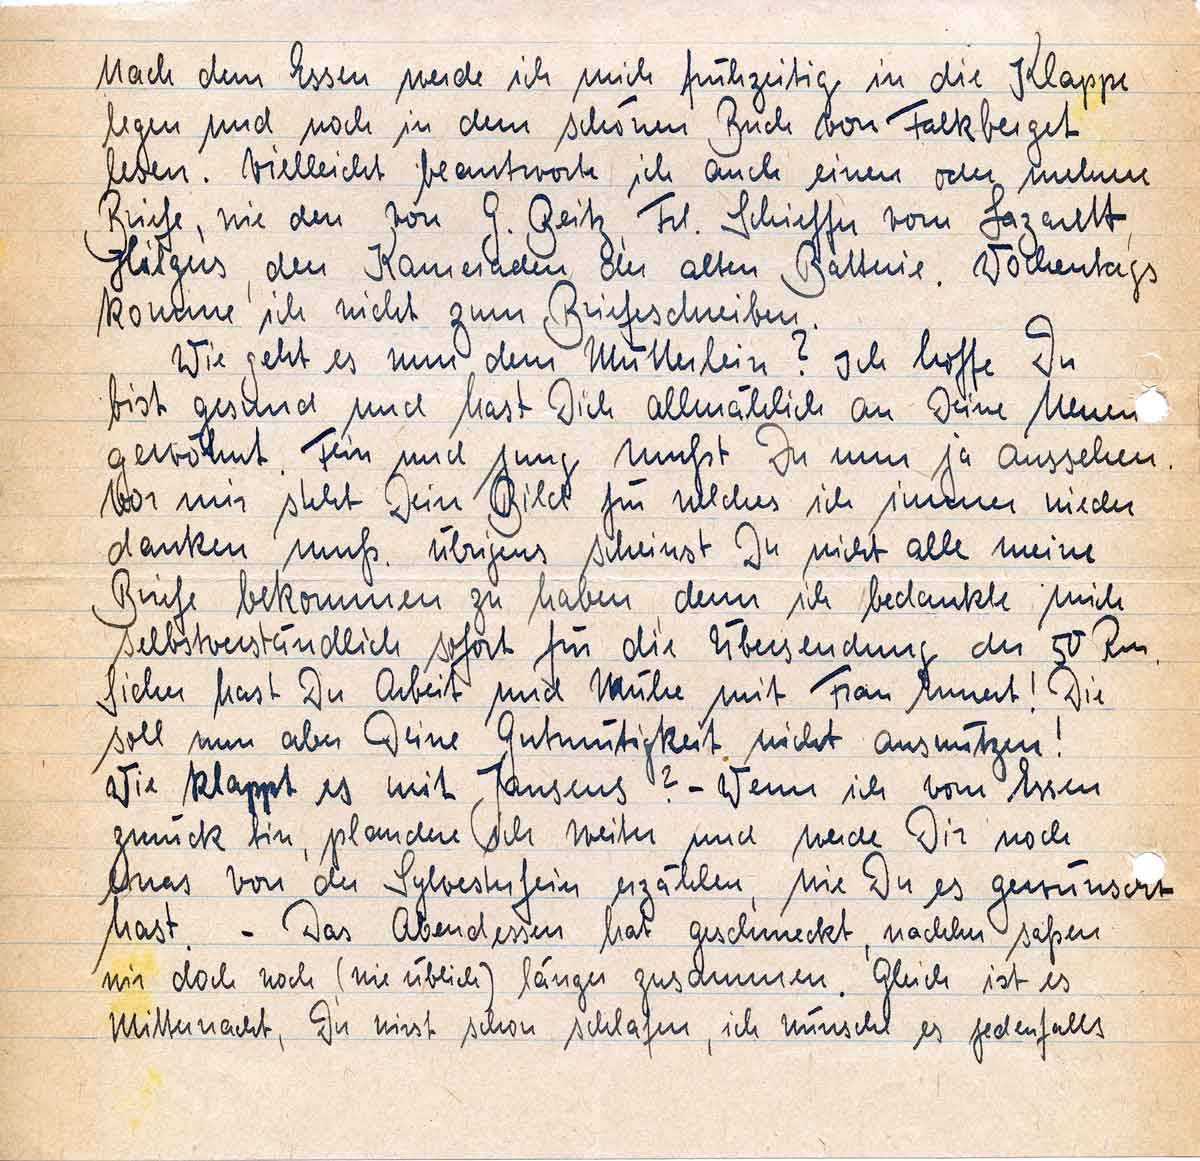 Nach dem Essen werde ich mich frühzeitig in die Klappe
legen und noch in dem schönen Buch von Falkberget
lesen. Vielleicht beantworte ich auch einen oder mehrere
Briefe, wie den von G. Beitz, Frl. Schieffer vom Lazarett,
Hilgers, den Kameraden der alten Batterie. Wochentags
komme ich nicht zum Briefeschreiben.
Wie geht es nun dem Mütterlein? Ich hoffe Du
bist gesund und hast Dich allmählich an Deine Neuen
gewöhnt. Fein und jung mußt Du nun ja aussehen.
Vor mir steht Dein Bild für welches ich immer wieder
danken muß. Übrigens scheinst Du nicht alle meine
Briefe bekommen zu haben denn ich bedankte mich
selbstverständlich sofort für die Übersendung der 50 Rm.
Sicher hast Du Arbeit und Mühe mit Frau! Die
soll nun aber Deine Gutmütigkeit nicht ausnützen!
Wie klappt es mit Jansens? - Wenn ich vom Essen
zurück bin, plaudere ich weiter und werde Dir noch
etwas von der Sylvesterfeier erzählen, wie Du es gewünscht
hast. - Das Abendessen hat geschmeckt, nachher saßen
wir doch noch (wie üblich) länger zusammen. Gleich ist es
Mitternacht, Du wirst schon schlafen, ich wünsche es jedenfalls